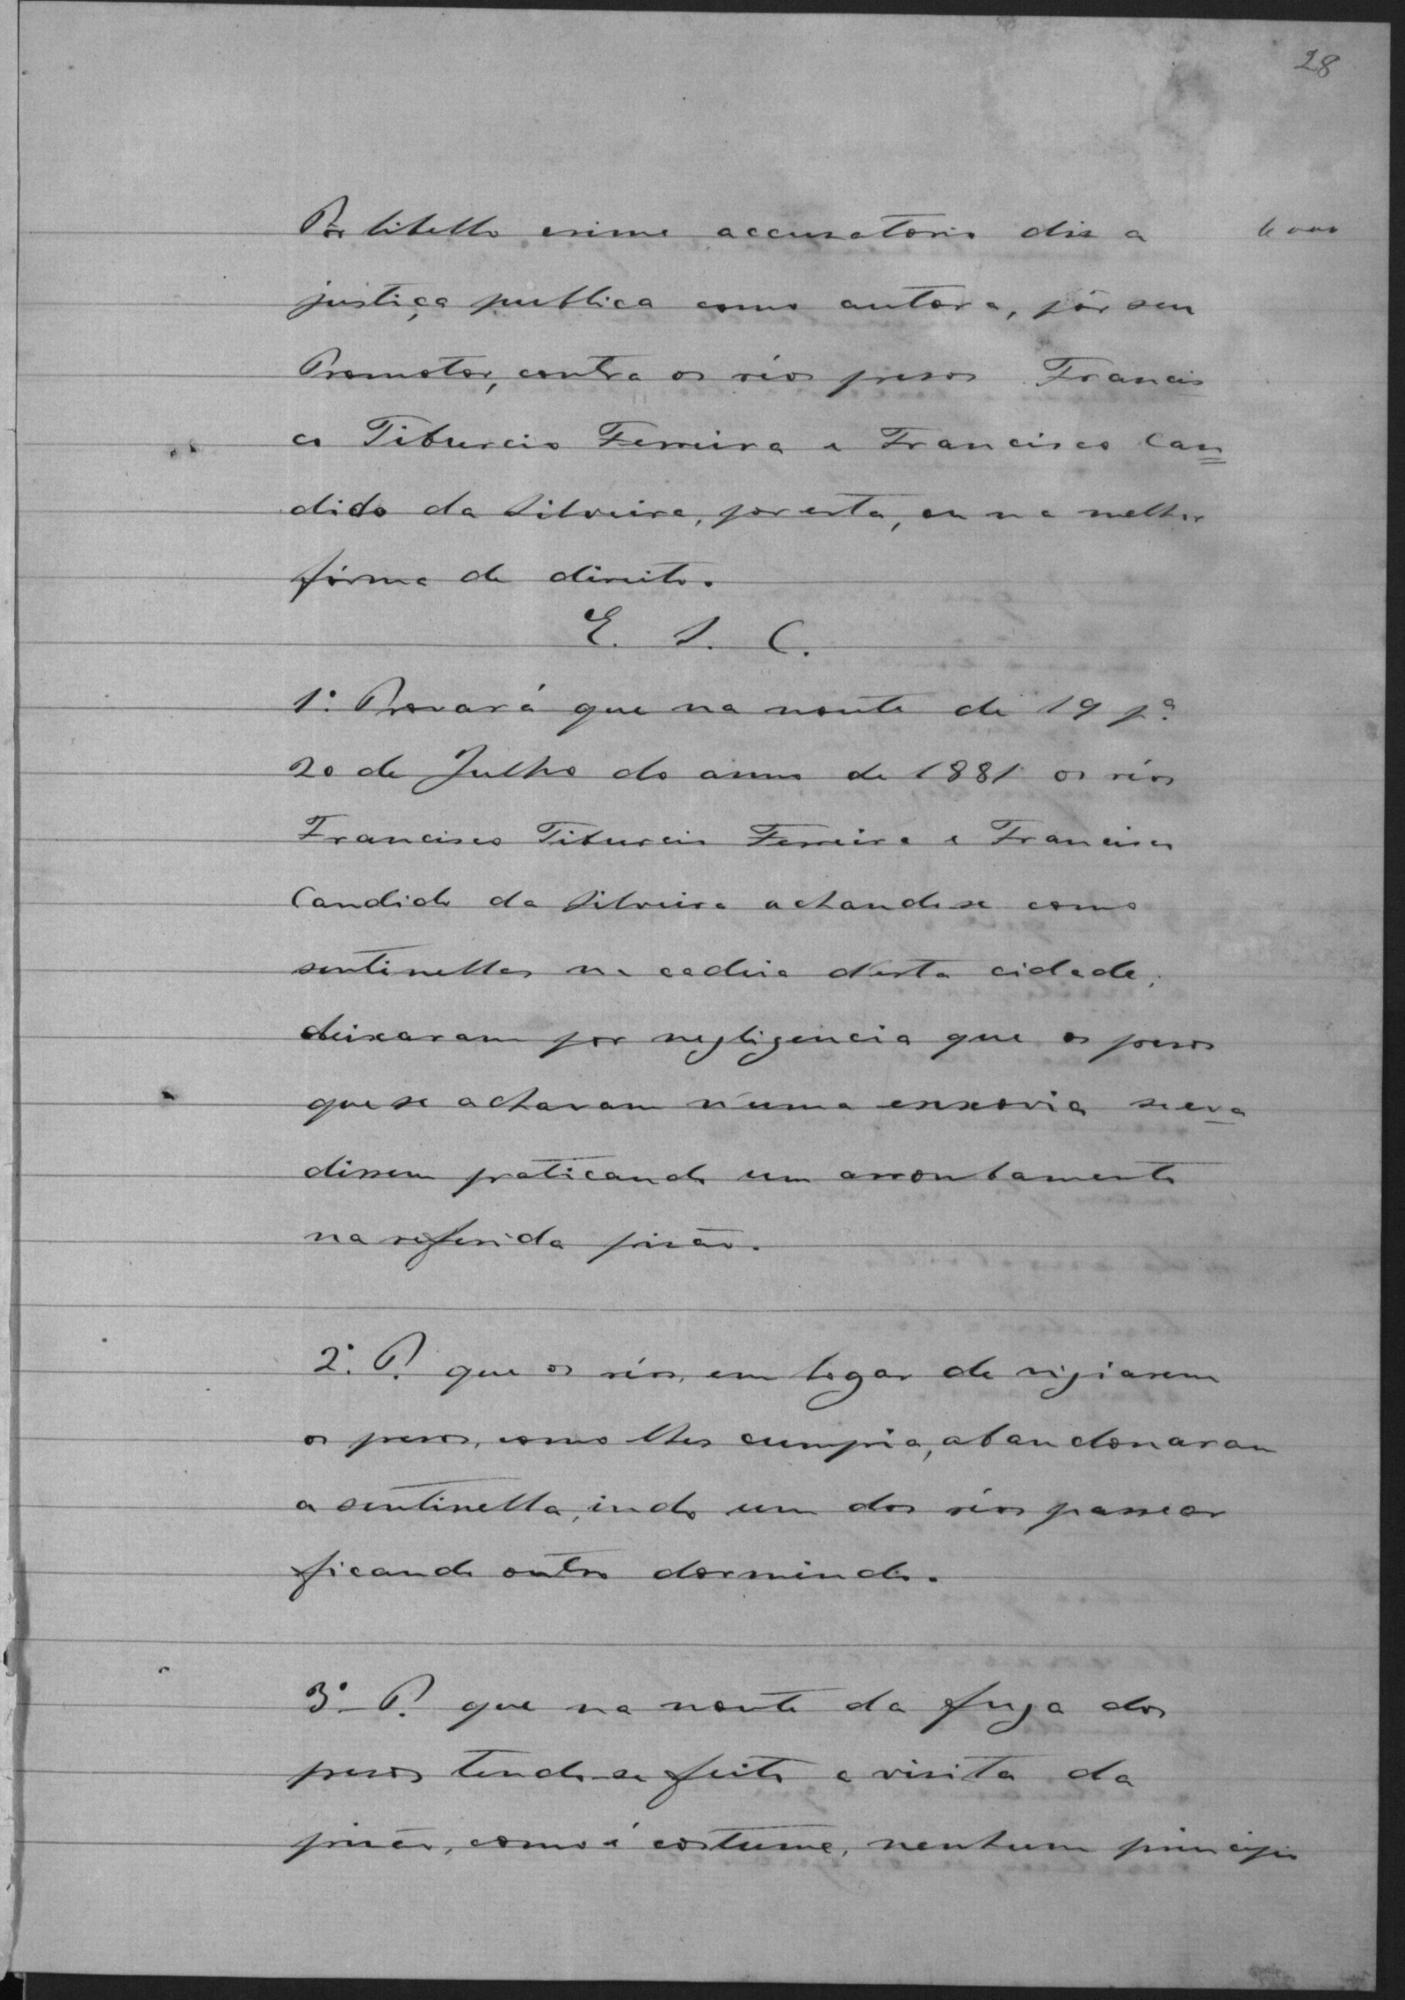 28
Por libello crime accusatorio diz a 6000
justiça publica como autora, pôr seu
Promotor, contra os réos presos Francis
co Tiburcio Ferreira e Francisco Can
dido da Silveira, por esta, ou na melhor
fórma de direito.
E. S. C.
1º. Provará que na noute de 19 pª
20 de Julho do anno de 1881 os réos
Francisco Tiburcio Ferreira e Francisco
Candido da Silveira achando-se como
sentinellas na cadeia desta cidade,
deixaram por negligencia que os presos
que se achavam n'uma enxovia se eva
dissem praticando um arrombamento
na referida prisão.
2º. P. que os réos, em logar de vigiarem
os presos, como lhes cumpria, abandonaram
a sentinella, indo um dos réos passear
ficando outro dormindo.
3º P. que na noute da fuga dos
presos tendo-se feito a visita da
prisão, como é costume, nenhum principio